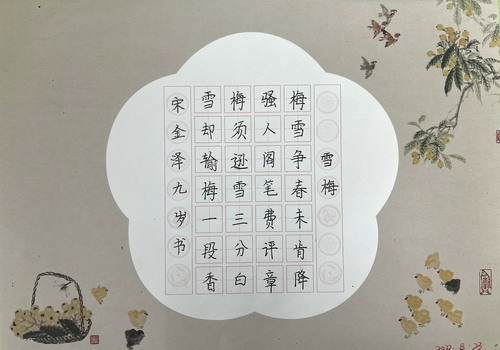 雪梅
梅雪争春未肯降
骚人阁笔费评章
梅须逊雪三分白
雪却输梅一段香
宋金泽九岁书
2022.8.23